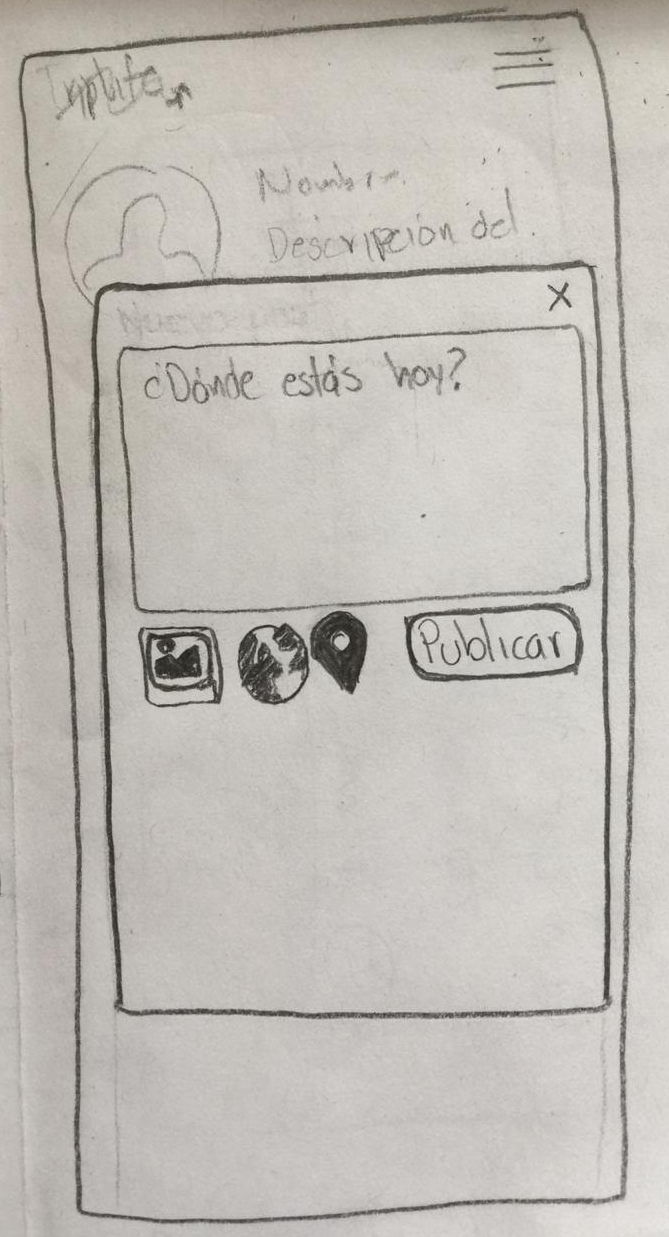 Nombre
Descripción del
X
¿Dónde estás hoy?
Publicar